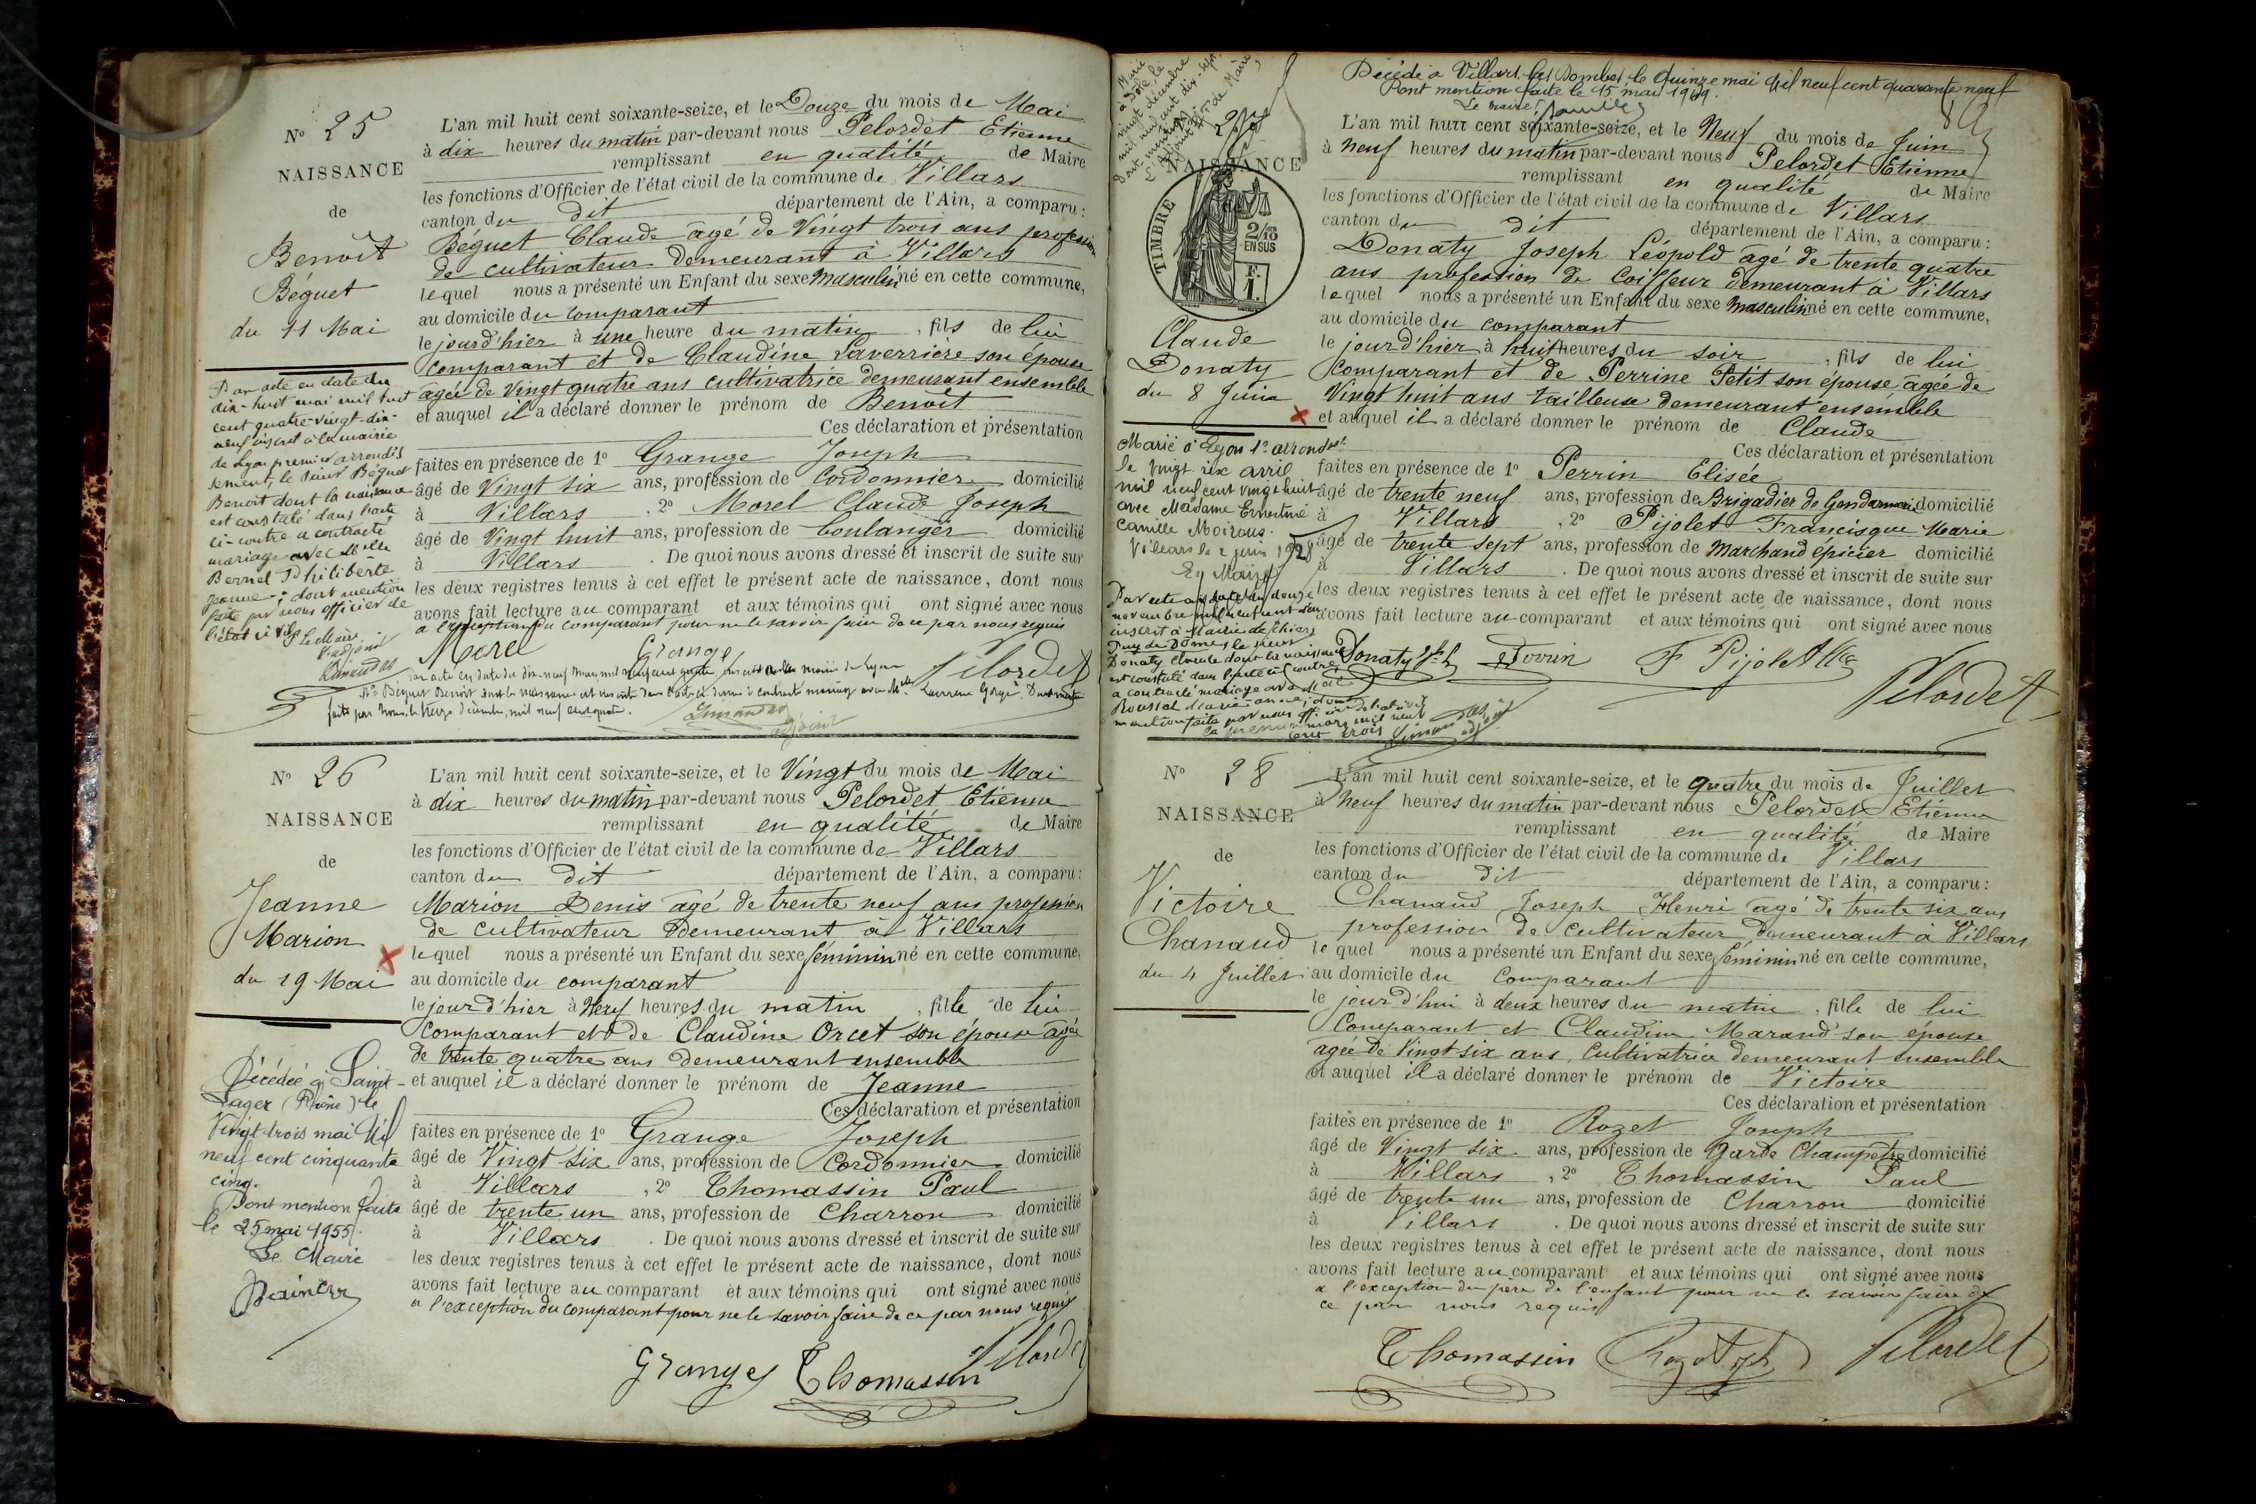 N° 25
NAISSANCE
de
Benoit
Béguet
du 11 Mai
L'an mil huit cent soixante-seize, et le Douze du mois de Mai
à dix heures du matin par-devant nous Pelordet Etienne
remplissant en qualité de Maire
les fonctions d'Officier de l'état civil de la commune de Villars
canton du dit département de l'Ain, a comparu:
Béguet Claude agé de Vingt trois ans profession
de cultivateur demeurant à Villars
lequel nous a présenté un Enfant du sexe masculin né en cette commune,
au domicile du comparant
le jourd'hier à une heure du matin, fils de lui
comparant et de Claudine Laverrière son épouse
agée de Vingt quatre ans cultivatrice demeurant ensemble
et auquel il a déclaré donner le prénom de Benoit
Ces déclaration et présentation
faites en présence de 1° Grange Joseph
âgé de Vingt six ans, profession de Cordonnier domicilié
à Villars, 2° Morel Claude Joseph
âgé de Vingt huit ans, profession de boulanger domicilié
à Villars. De quoi nous avons dressé et inscrit de suite sur
les deux registres tenus à cet effet le présent acte de naissance, dont nous
avons fait lecture au comparant et aux témoins qui ont signé avec nous
a l'exception du comparant pour ne le savoir faire de ce par nous requis
Morel Grange Pelordet
Par acte en date du
dix-huit mai mil huit
cent quatre-vingt-dix-
neuf inscrit à la mairie
de Lyon premier arrondis
sement, le sieur Béguet
Benoit dont la naissance
est constaté dans l'acte
ci-contre a contracté
mariage avec Melle
Bernet Philiberte
Jeanne; dont mention
faite par nous officier de
l'état civil
P. Le Maire
L'adjoint
faite par Nous, le treize décembre, mil neuf cent quatre.
adjoint
N° 26
NAISSANCE
de
Jeanne
Marion
du 19 Mai
L'an mil huit cent soixante-seize, et le Vingt du mois de Mai
à dix heures du matin par-devant nous Pelordet Etienne
remplissant en qualité de Maire
les fonctions d'Officier de l'état civil de la commune de Villars
canton du dit département de l'Ain, a comparu:
Marion Denis agé de trente neuf ans profession
de cultivateur demeurant à Villars
lequel nous a présenté un Enfant du sexe féminin né en cette commune,
au domicile du comparant
le jourd'hier à Neuf heures du matin, fille de lui
comparant et de Claudine Orcet son épouse agée
de trente quatre ans demeurant ensemble
et auquel il a déclaré donner le prénom de Jeanne
Ces déclaration et présentation
faites en présence de 1° Grange Joseph
âgé de Vingt six ans, profession de Cordonnier domicilié
à Villars, 2° Thomassin Paul
âgé de trente un ans, profession de Charron domicilié
à Villars. De quoi nous avons dressé et inscrit de suite sur
les deux registres tenus à cet effet le présent acte de naissance, dont nous
avons fait lecture au comparant et aux témoins qui ont signé avec nous
a l'exception du comparant pour ne le savoir faire de ce par nous requis
Grange Thomassin Pelordet
Décédée à Saint-
Lager (Rhône) le
Vingt-trois mai Mil
neuf cent cinquante
cinq.
Dont mention faite
le 25 mai 1955.
Le Maire
Décédé à Villars les Dombes le quinze mai Mil neuf cent quarante neuf
Dont mention faite le 15 mai 1949.
Le Maire
Marié
à Dole, le
vingt décembre
mil neuf cent dix-sept.
NAISSANCE
TIMBRE
2/10
EN SUS
F.
1.
Claude
Donaty
du 8 Juin
L'an mil huit cent soixante-seize, et le Neuf du mois de Juin
à Neuf heures du matin par-devant nous Pelordet Etienne
remplissant en qualité de Maire
les fonctions d'Officier de l'état civil de la commune de Villars
canton du dit département de l'Ain, a comparu:
Donaty Joseph Léopold agé de trente quatre
ans profession de Coiffeur demeurant à Villars
lequel nous a présenté un Enfant du sexe masculin né en cette commune,
au domicile du comparant
le jourd'hier à huit heures du soir, fils de lui
comparant et de Perrine Petit son épouse agée de
Vingt huit ans tailleuse demeurant ensemble
et auquel il a déclaré donner le prénom de Claude
Ces déclaration et présentation
faites en présence de 1° Perrin Elisée
âgé de trente neuf ans, profession de Brigadier de Gendarmerie domicilié
à Villars, 2° Pijolet Francisque Marie
âgé de trente sept ans, profession de Marchand épicier domicilié
à Villars. De quoi nous avons dressé et inscrit de suite sur
les deux registres tenus à cet effet le présent acte de naissance, dont nous
avons fait lecture au comparant et aux témoins qui ont signé avec nous
Donaty F Pijolet Pelordet
Marié à Lyon 1er arrondsst
le vingt six avril
mil neuf cent vingt huit
avec Madame Ernestine
Camille Moirous.
Villars le 2 juin 1928
Le Maire
Par acte en date du douze
novembre mil neuf cent deux
inscrit à Mairie de Thiers
Puy de Dôme, le sieur
Donaty Claude dont la naissance
est constaté dans l'acte ci contre
a contracté mariage avec Melle
Roussel Marie-Anne; dont
mention faite par nous officier de l'état civil
cent trois
N° 28
NAISSANCE
de
Victoire
Chanaud
du 4 Juillet
L'an mil huit cent soixante-seize, et le quatre du mois de Juillet
à Neuf heures du matin par-devant nous Pelordet Etienne
remplissant en qualité de Maire
les fonctions d'Officier de l'état civil de la commune de Villars
canton du dit département de l'Ain, a comparu:
Chanaud Joseph Henri agé de trente six ans
profession de cultivateur demeurant à Villars
lequel nous a présenté un Enfant du sexe féminin né en cette commune,
au domicile du Comparant
le jourd'hui à deux heures du matin, fille de lui
Comparant et Claudine Marand son épouse
agée de Vingt six ans, Cultivatrice demeurant Ensemble
et auquel il a déclaré donner le prénom de Victoire
Ces déclaration et présentation
faites en présence de 1° Rozet Joseph
âgé de Vingt six ans, profession de Garde Champêtre domicilié
à Villars, 2° Thomassin Paul
âgé de trente un ans, profession de Charron domicilié
à Villars. De quoi nous avons dressé et inscrit de suite sur
les deux registres tenus à cet effet le présent acte de naissance, dont nous
avons fait lecture au comparant et aux témoins qui ont signé avec nous
a l'exception du père de l'enfant pour ne le savoir faire de
ce par nous requis
Thomassin Rozet Jph Pelordet